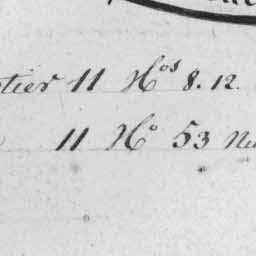 tier 11 H^os 8. 12.
11 H^o 53